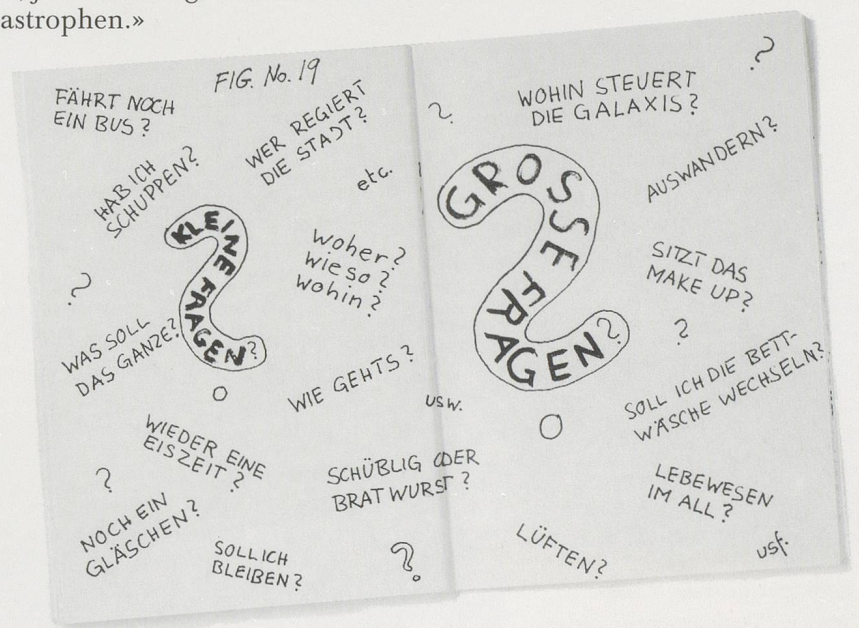 astrophen.»
FIG. No. 19
FÄHRT NOCH
EIN BUS?
HAB ICH
SCHUPPEN?
WER REGIERT
DIE STADT?
etc.
KLEINE FRAGEN?
woher?
wieso?
wohin?
?
WAS SOLL
DAS GANZE?
WIE GEHTS?
usw.
WIEDER EINE
EISZEIT?
?
SCHÜBLIG ODER
BRATWURST?
NOCH EIN
GLÄSCHEN?
SOLL ICH
BLEIBEN?
?
?
WOHIN STEUERT
DIE GALAXIS?
?
GROSSE FRAGEN?
AUSWANDERN?
SITZT DAS
MAKE UP?
?
SOLL ICH DIE BETT-
WÄSCHE WECHSELN?
LEBEWESEN
IM ALL?
LÜFTEN?
usf.